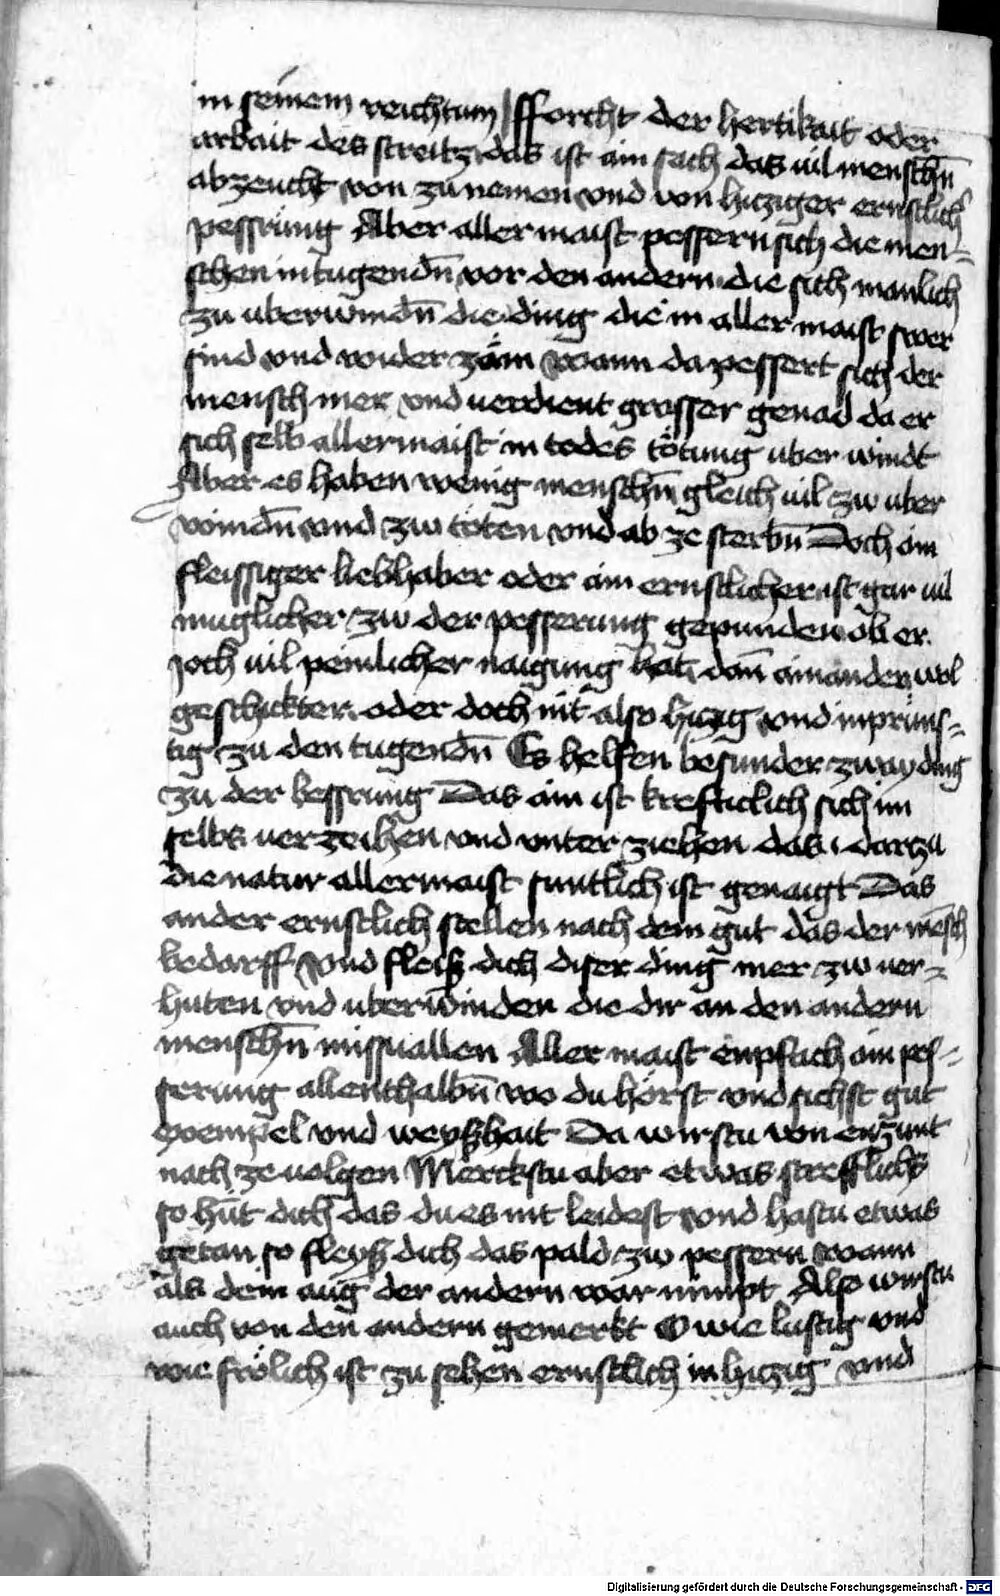 in seinem reichtum fforcht der hertikait oder
arbait des streitz das ist ain sach das uil menschn̄
abzeucht von zunemen vnd von hicziger ernstlich̉
pessrung Aber aller maist pessern sich die men=
schen in tugendn̄ vor den andern die sich manlich
zu uberwindn̄ die ding die in aller maist swer
sind vnd wider zäm wann da pessert sich der
mensch mer vnd uerdient grosser genad da er
sich selb allermaist in todes tötung uber windt
Aber es haben wenig menschn̄ gleich uil zw uber
windn̄ vnd zw töten vnd ab ze sterbn̄ Doch ain
fleissiger liebhaber oder ain ernstlicher ist gar uil
muglicher zw der pesserung gepunden ob er
joch uil peinlicher naigung hat dan̄ ain ander wol
geschickter oder doch nit also hiczig vnd inpruns=
tig zu den tugendn̄ Es helfen besunder zway ding
zu der bessrung Das ain ist krefticlich sich im
selbs uerzeihen vnd vnter ziehen das darzu
die natur allermaist suntlich ist genaigt Das
ander ernstlich stellen nach dem gut das der mēsch
bedarff Vnd fleiß dich diser ding mer zw uer=
huten vnd uberwinden die dir an den andern
menschn̄ missuallen Aller maist enpfach ain pes=
serung allenthalbn̄ wo du hörst vnd sichst gut
exempel vnd weyßhait Da wirstu von enzunt
nach ze uolgen Merckstu aber etwas strefflichs
so hüt dich das du es nit leidest vnd hastu etwas
getan so fleyß dich das pald zw pessern wann
als dein aug der andern war nimpt Also wirstu
auch von den andern gemerkt O wie lustig vnd
wie frölich ist zu sehen ernstlich in hiczig vnd
Digitalisierung gefördert durch die Deutsche Forschungsgemeinschaft - DFG